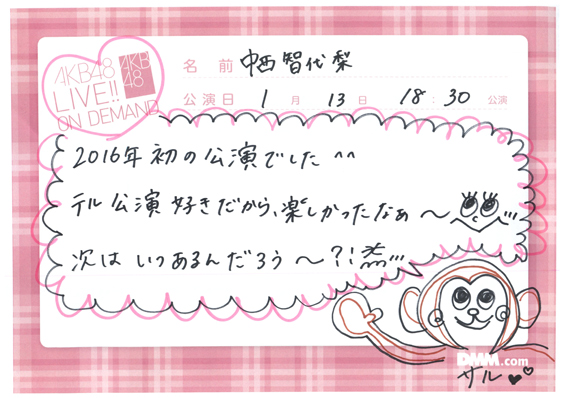 AKB48
LIVE!!
ON DEMAND
AKB
48
名 前 中西智代梨
公演日 1 月 13 日 18 : 30 公演
2016年 初の公演でした ^^
テル公演 好きだから、楽しかったなぁ 〜
次は いつあるんだろう 〜?!
DMM.com
サル